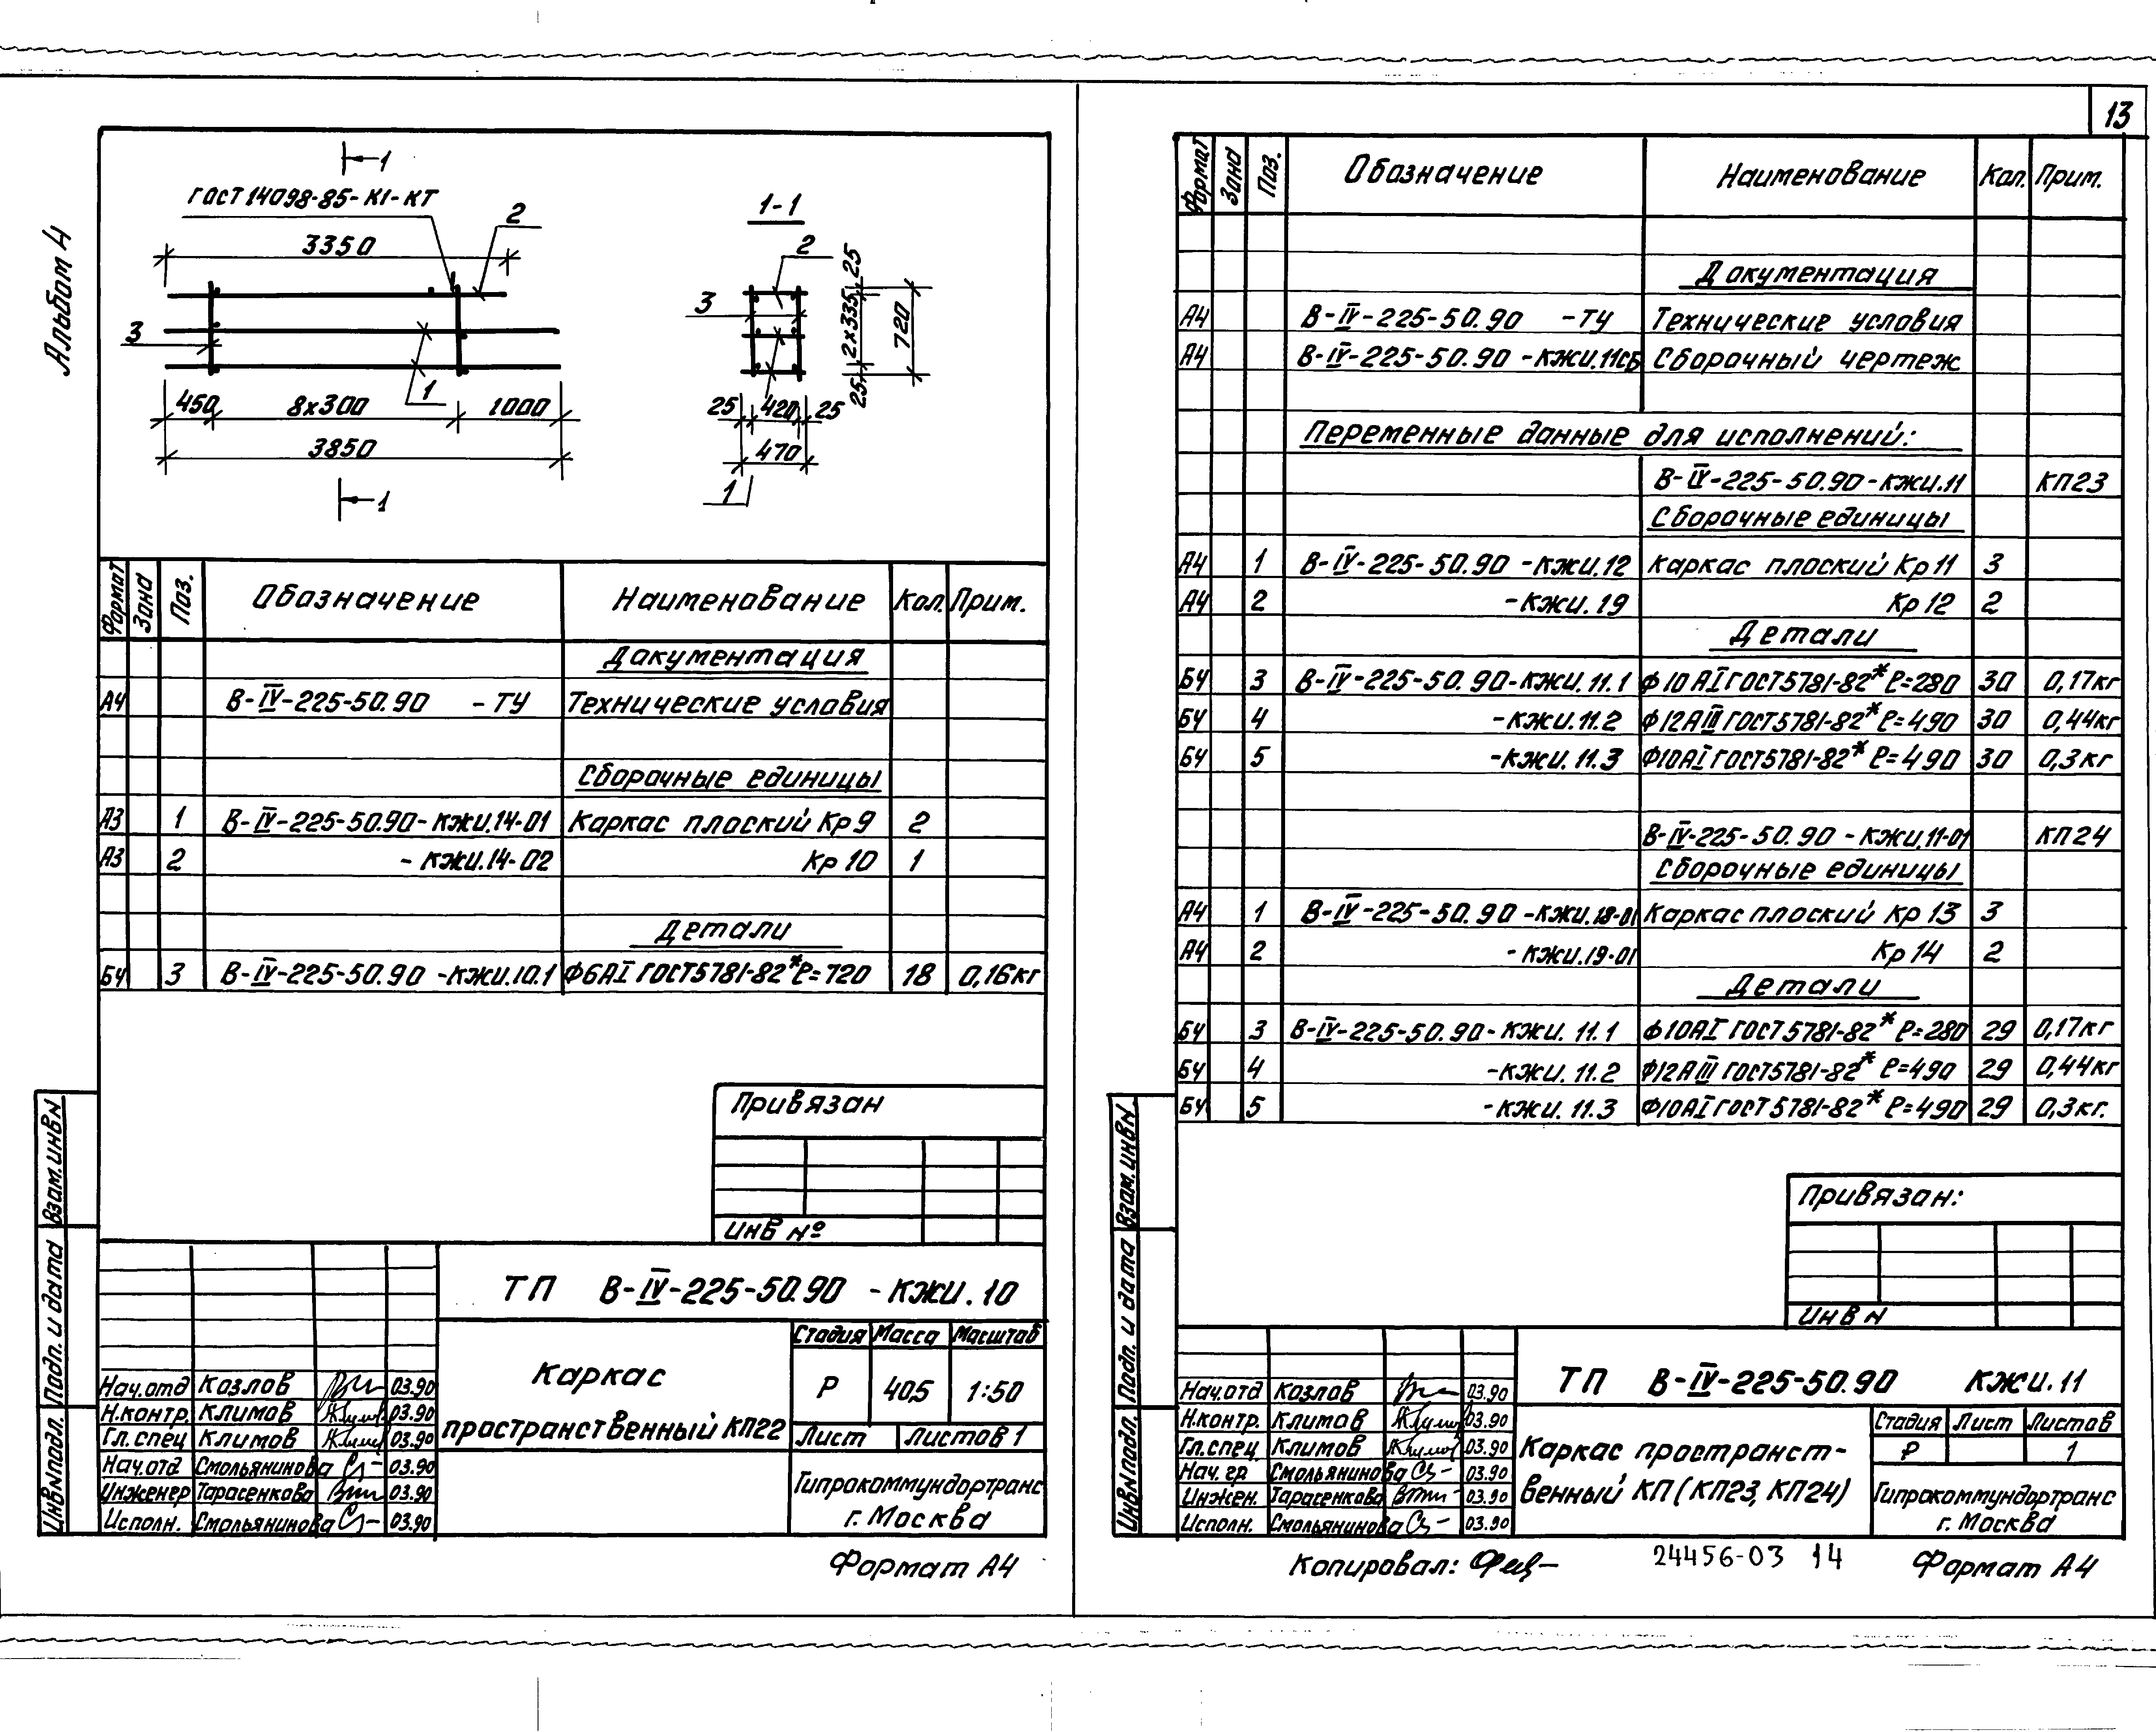 13
Альбом 4
1
ГОСТ 14098-85-К1-КТ
2
3350
3
1
450 8х300 1000
3850
1
1-1
2
3
25
2х335
25
720
25 420 25
470
1
Формат Зона Поз. Обозначение Наименование Кол. Прим.
Документация
А4 В-IV-225-50.90 -ТУ Технические условия
Сборочные единицы
А3 1 В-IV-225-50.90-КЖИ.14-01 Каркас плоский Кр 9 2
А3 2 -КЖИ.14-02 Кр 10 1
Детали
БЧ 3 В-IV-225-50.90 -КЖИ.10.1 Ф6АI ГОСТ5781-82* ℓ=720 18 0,16кг
Привязан
Инв №
Взам.инв N
Подп. и дата
Инв N подл.
ТП В-IV-225-50.90 -КЖИ.10
Каркас
пространственный КП22
Стадия Масса Масштаб
Р 40,5 1:50
Лист Листов 1
Гипрокоммундортранс
г. Москва
Нач.отд Козлов 03.90
Н.контр. Климов 03.90
Гл.спец Климов 03.90
Нач.отд Смольянинова 03.90
Инженер Тарасенкова 03.90
Исполн. Смольянинова 03.90
Формат А4
Формат Зона Поз. Обозначение Наименование Кол. Прим.
Документация
А4 В-IV-225-50.90 -ТУ Технические условия
А4 В-IV-225-50.90 -КЖИ.11СБ Сборочный чертеж
Переменные данные для исполнений:
В-IV-225-50.90-КЖИ.11 КП23
Сборочные единицы
А4 1 В-IV-225-50.90 -КЖИ.12 Каркас плоский Кр 11 3
А4 2 -КЖИ.19 Кр 12 2
Детали
БЧ 3 В-IV-225-50.90-КЖИ.11.1 Ф10АI ГОСТ5781-82* ℓ=280 30 0,17кг
БЧ 4 -КЖИ.11.2 Ф12АIII ГОСТ5781-82* ℓ=490 30 0,44кг
БЧ 5 -КЖИ.11.3 Ф10АI ГОСТ5781-82* ℓ=490 30 0,3кг
В-IV-225-50.90-КЖИ.11-01 КП24
Сборочные единицы
А4 1 В-IV-225-50.90 -КЖИ.18-01 Каркас плоский Кр 13 3
А4 2 -КЖИ.19-01 Кр 14 2
Детали
БЧ 3 В-IV-225-50.90-КЖИ.11.1 Ф10АI ГОСТ5781-82* ℓ=280 29 0,17кг
БЧ 4 -КЖИ.11.2 Ф12АIII ГОСТ5781-82* ℓ=490 29 0,44кг
БЧ 5 -КЖИ.11.3 Ф10АI ГОСТ5781-82* ℓ=490 29 0,3кг.
Привязан:
Инв N
Взам.инв N
Подп. и дата
Инв N подл.
ТП В-IV-225-50.90 КЖИ.11
Каркас пространст-
венный КП (КП23, КП24)
Стадия Лист Листов
Р 1
Гипрокоммундортранс
г. Москва
Нач.отд Козлов 03.90
Н.контр. Климов 03.90
Гл.спец Климов 03.90
Нач.гр Смольянинова 03.90
Инжен. Тарасенкова 03.90
Исполн. Смольянинова 03.90
Копировал: 24456-03 14 Формат А4